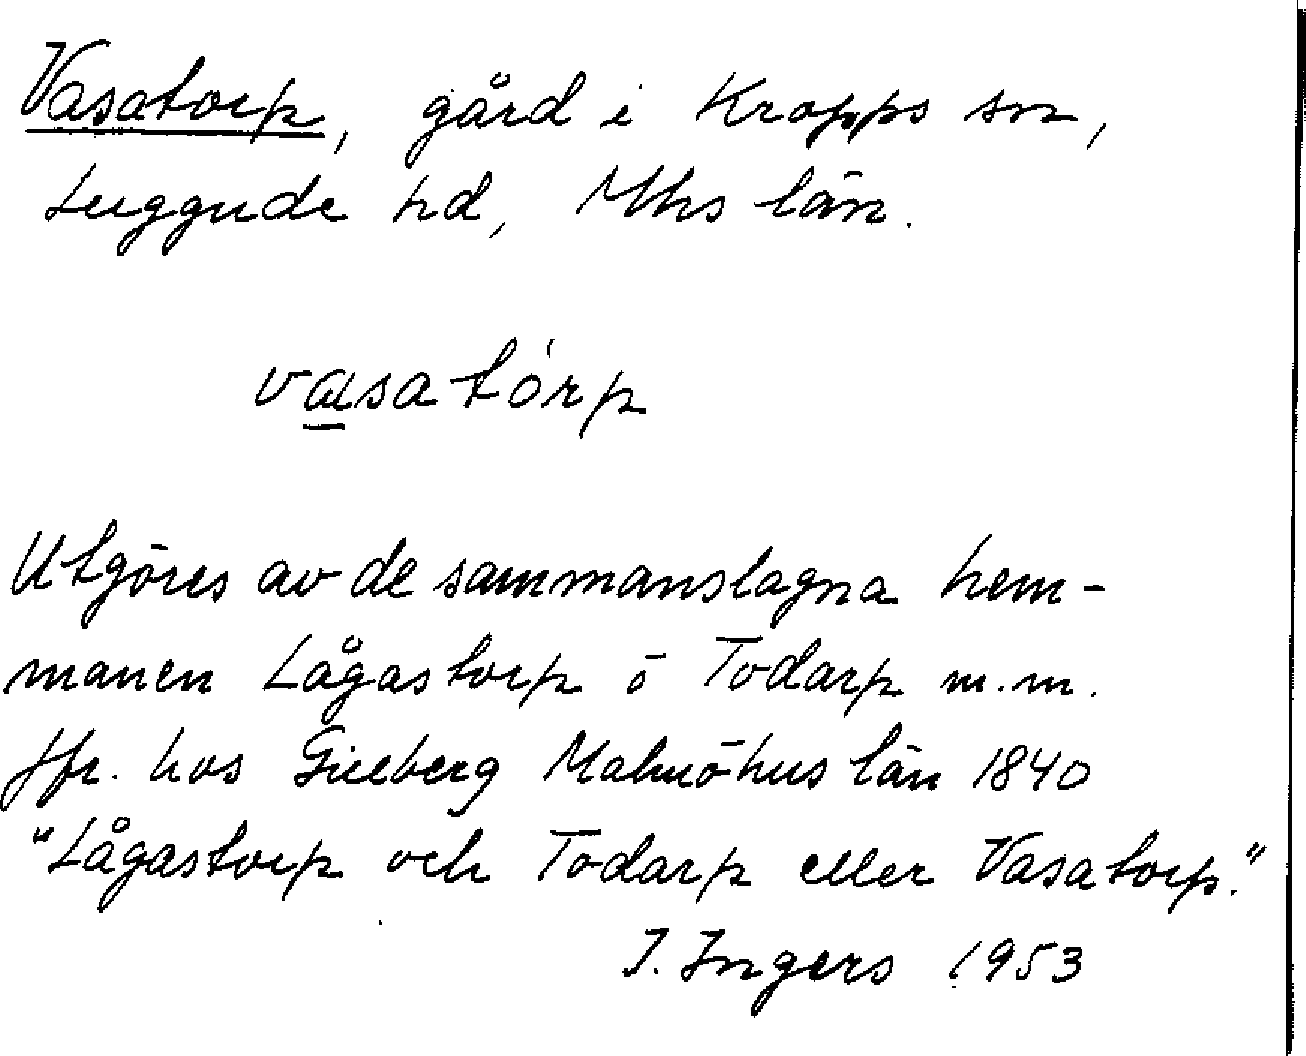 Vasatorp, gård i Kropps sn,
Luggude hd, Mhs län.
vasatórp
Utgöres av de sammanslagna hem-
manen Lågastorp ö Todarp m.m.
Jfr. hos Gillberg Malmöhus län 1840
"Lågastorp och Todarp eller Vasatorp."
I. Ingers 1953